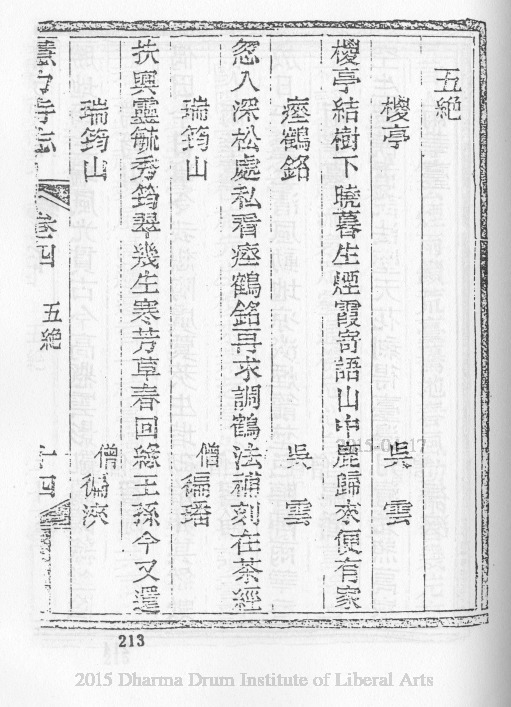 五絕
椶亭 吳雲
椶亭結樹下曉暮生煙霞寄語山中鹿歸來便有家
瘞鶴銘 吳雲
忽入深松處私看瘞鶴銘再求調鶴法補刻在茶經
瑞筠山 僧
扶輿靈毓秀筠翠幾生寒芳草春回綠王孫今又還
瑞筠山 僧
慧力寺志 卷四 五絕 十四
213
2015 Dharma Drum Institute of Liberal Arts